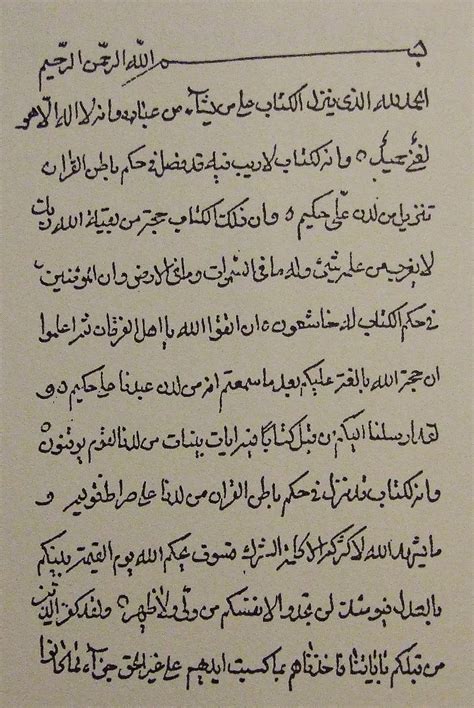 بسم الله الرحمن الرحيم
الحمد لله الذي ينزل الكتاب على من يشآء من عباده وانه لا اله الا هو
لغني حميد وانه لكتاب لا ريب فيه قد فصل في حكم باطن القران
تنزيل من لدن علي حكيم وان ذلك الكتاب حجة من بقية الله ربك
لا يعزب من علمه شيئ وله ما في السموات وما في الارض وان المؤمنين
في حكم الكتاب له خاشعون ان اتقوا الله يا اهل الفرقان ثم اعلموا
ان حجة الله بالغة عليكم بعد ما سمعتم امره من لدن عبدنا علي حكيم و
لقد ارسلنا اليكم من قبل كتابا فيه ايات بينات من لدنا لقوم يوقنون
وانه لكتاب قد نزل في حكم باطن القران من لدنا على صراط قويم و
ما يشهد الله لاكثركم الا كلمة الشرك فسوف يحكم الله يوم القيمة بينكم
بالعدل فيومئذ لن تجدوا لانفسكم من ولي ولا ظهير ولقد كفر الذين
من قبلكم باياتنا فاخذناهم بما كسبت ايديهم على غير الحق جزآء بما كانوا